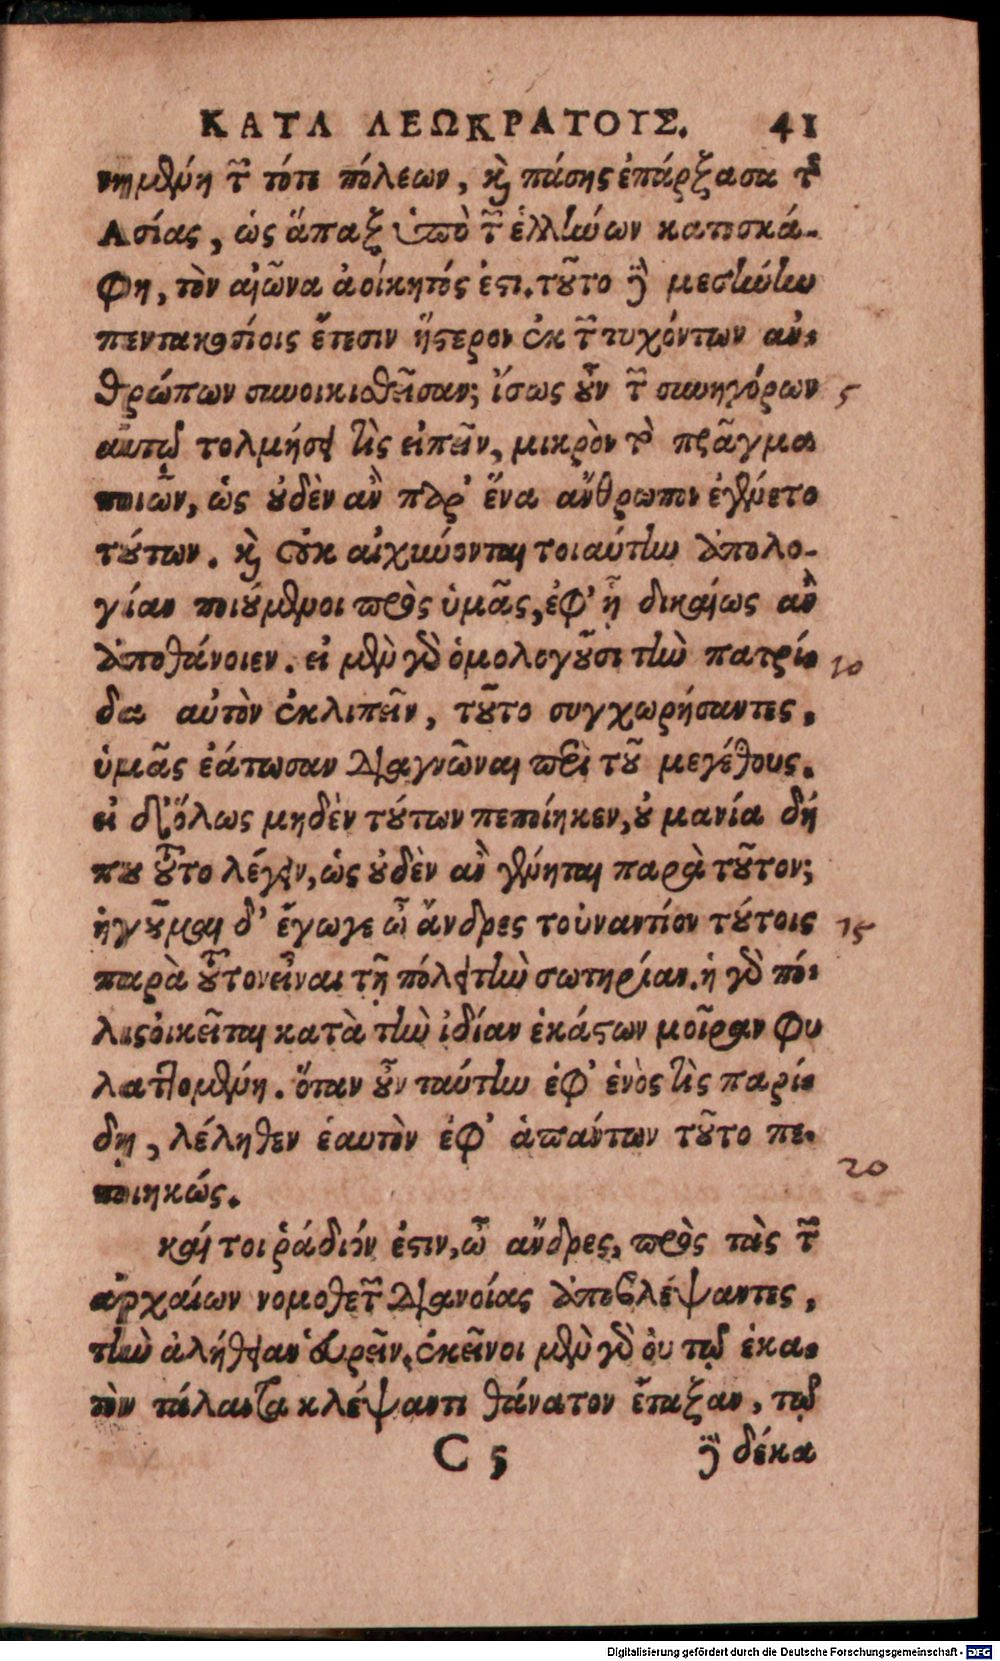 ΚΑΤΑ ΛΕΩΚΡΑΤΟΥΣ. 41
νημένη τῶν τότε πόλεων, καὶ πάσης ἐπάρξασα τῆς
Ασίας, ὡς ἅπαξ ὑπὸ τῶν ἑλλήνων κατεσκά-
φη, τὸν αἰῶνα ἀοίκητός ἐστι. τοῦτο δὲ μεσήνην
πεντακοσίοις ἔτεσιν ὕστερον ἐκ τῶν τυχόντων ἀν-
θρώπων συνοικισθεῖσαν; ἴσως οὖν τῶν συνηγόρων 5
αὐτῷ τολμήσει τὶς εἰπεῖν, μικρὸν τὸ πρᾶγμα
ποιῶν, ὡς οὐδὲν ἂν παρ’ ἕνα ἄνθρωπον ἐγένετο
τούτων. καὶ οὐκ αἰσχύνονται τοιαύτην ἀπολο-
γίαν ποιούμενοι πρὸς ὑμᾶς, ἐφ’ ᾗ δικαίως ἂν
ἀποθάνοιεν. εἰ μὲν γὰρ ὁμολογοῦσι τὴν πατρί- 10
δα αὐτὸν ἐκλιπεῖν, τοῦτο συγχωρήσαντες,
ὑμᾶς ἐάτωσαν διαγνῶναι περὶ τοῦ μεγέθους.
εἰ δ’ ὅλως μηδὲν τούτων πεποίηκεν, οὐ μανία δή
που τοῦτο λέγειν, ὡς οὐδὲν ἂν γένηται παρὰ τοῦτον;
ἡγοῦμαι δ’ ἔγωγε ὦ ἄνδρες τοὐναντίον τούτοις 15
παρὰ τοῦτον εἶναι τῇ πόλει τὴν σωτηρίαν. ἡ γὰρ πό-
λις οἰκεῖται κατὰ τὴν ἰδίαν ἑκάστων μοῖραν φυ
λαττομένη. ὅταν οὖν ταύτην ἐφ’ ἑνὸς τὶς παρί-
δῃ, λέληθεν ἑαυτὸν ἐφ’ ἁπάντων τοῦτο πε-
ποιηκώς. 20
καίτοι ῥᾴδιόν ἐστιν, ὦ ἄνδρες, πρὸς τὰς τῶν
ἀρχαίων νομοθετῶν διανοίας ἀποβλέψαντες,
τὴν ἀλήθειαν εὑρεῖν. ἐκεῖνοι μὲν γὰρ οὐ τῷ ἑκα-
τὸν τάλαντα κλέψαντι θάνατον ἔταξαν, τῷ
C 5 δὲ δέκα
Digitalisierung gefördert durch die Deutsche Forschungsgemeinschaft - DFG